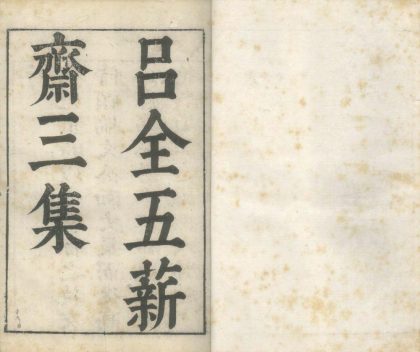 呂全五薪
齋三集